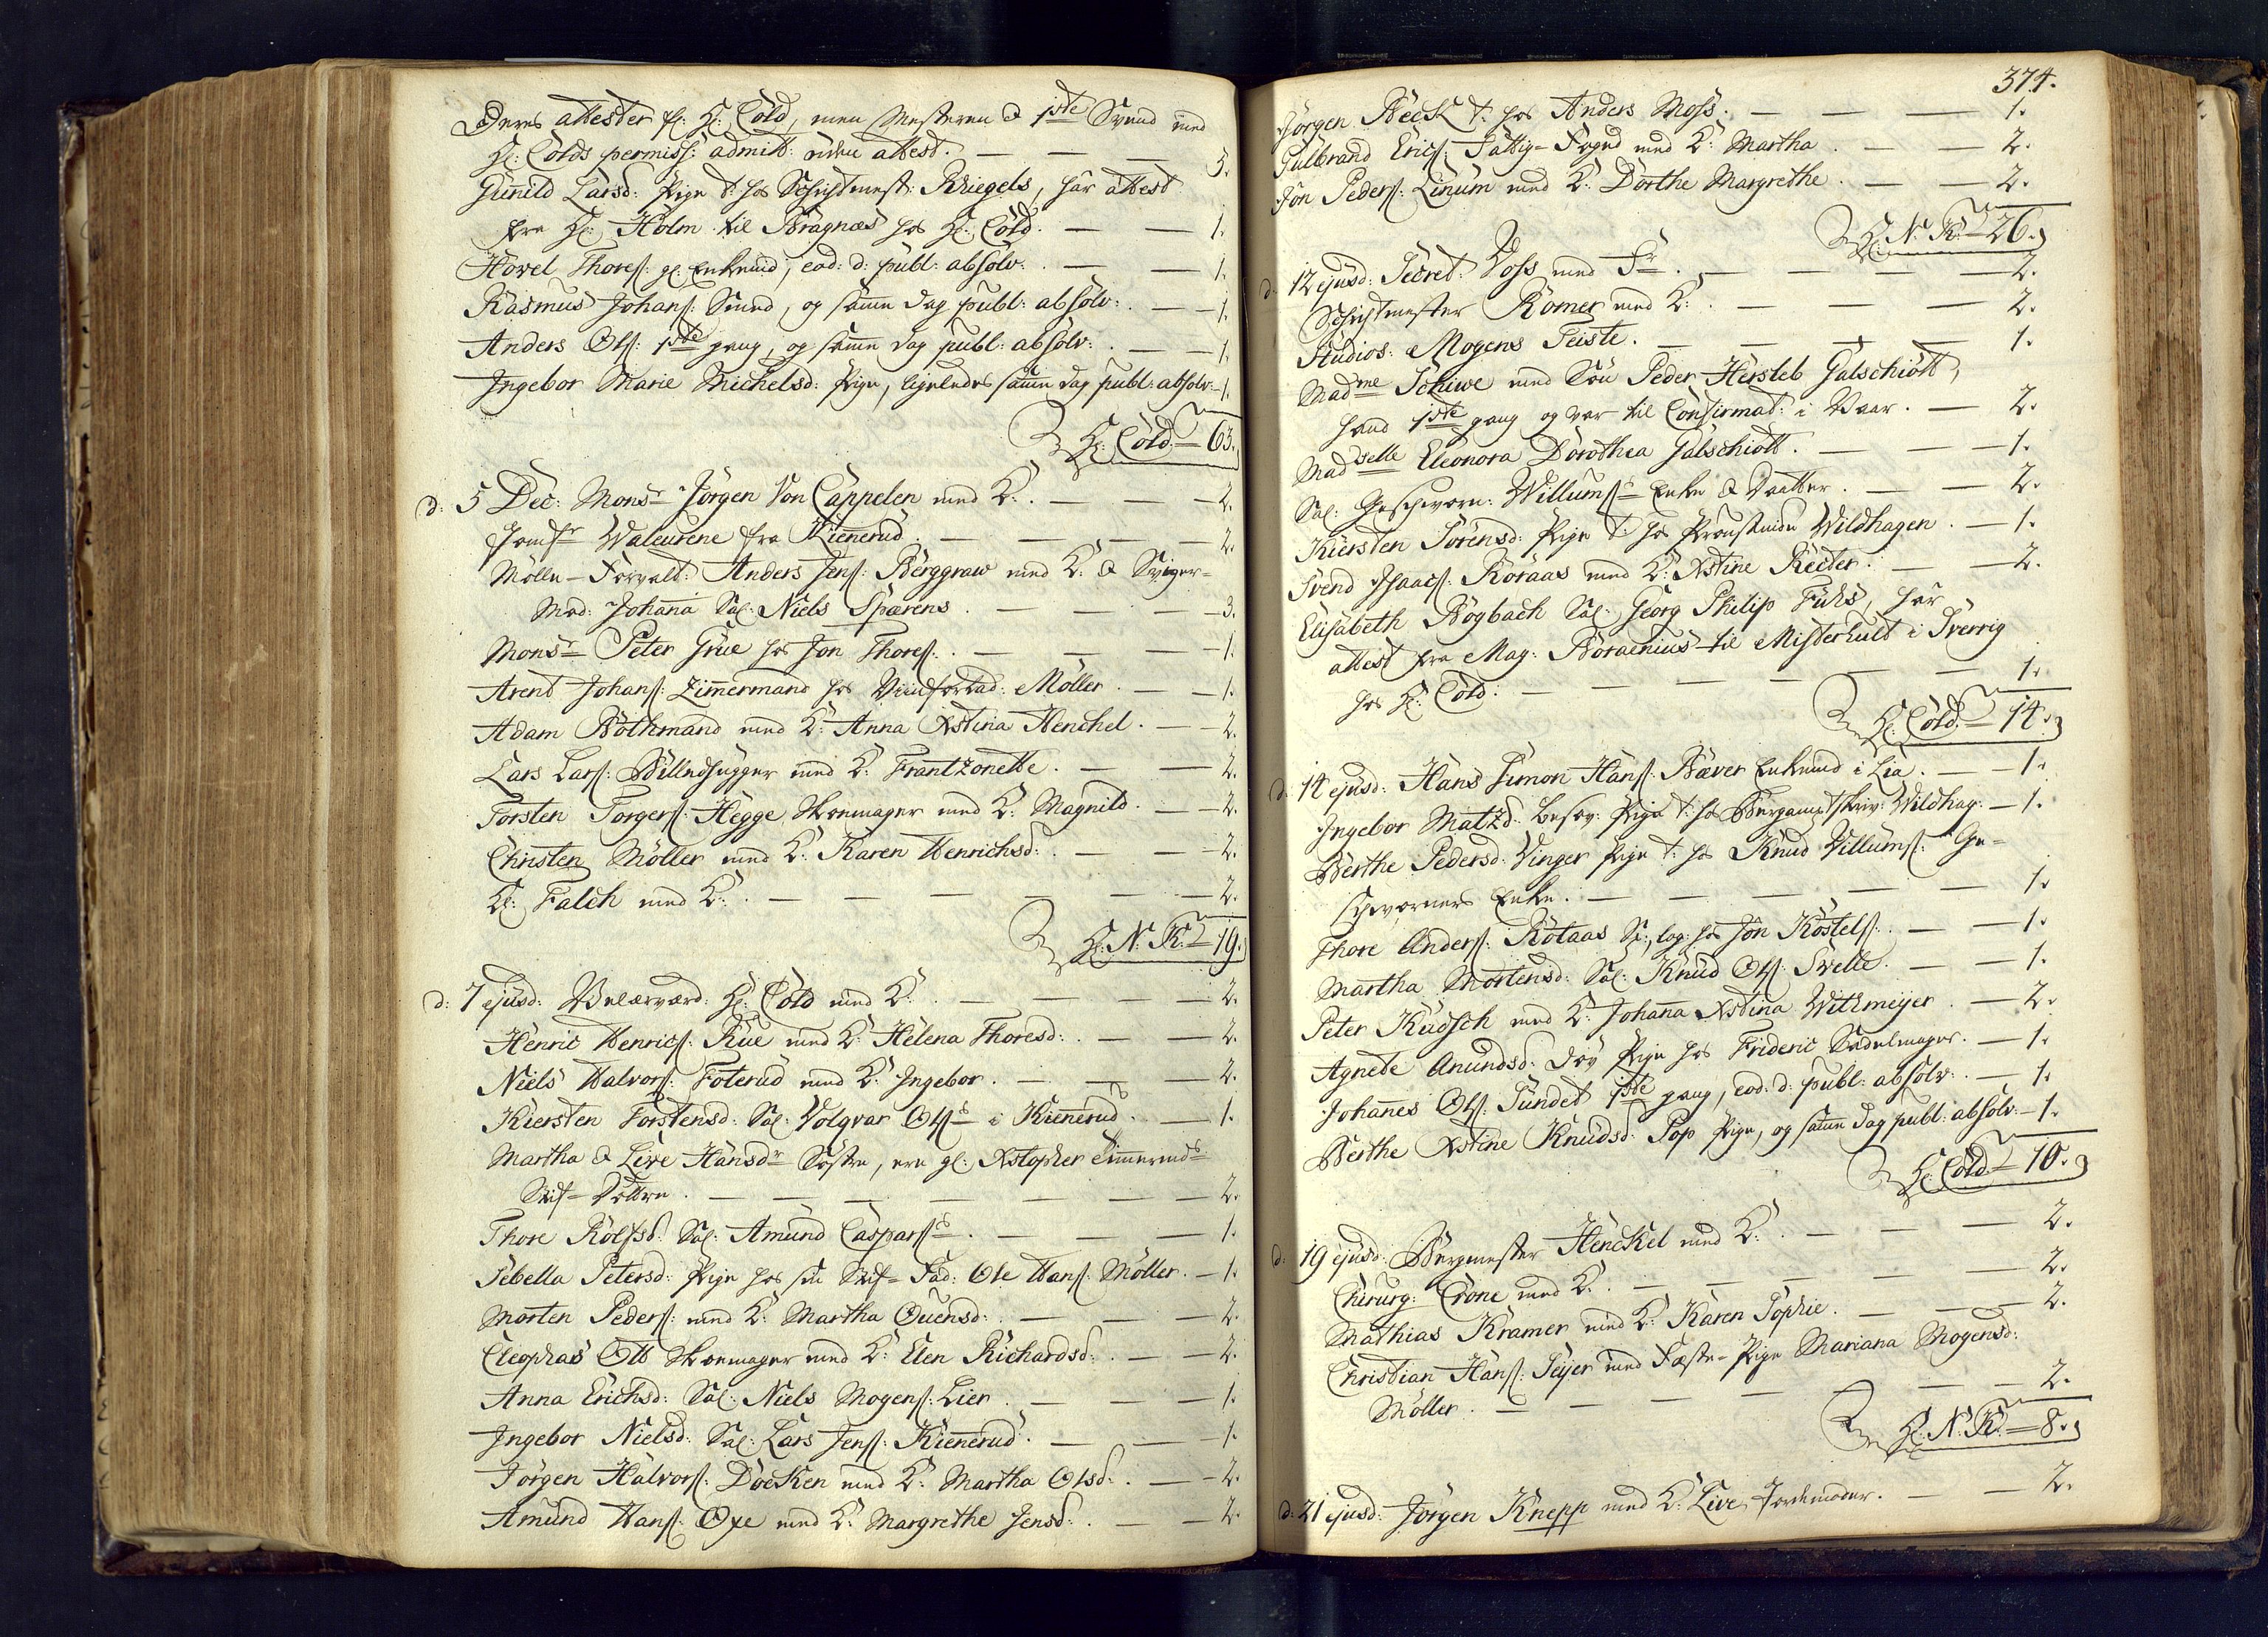 Deres attester fl: H: Cold, men Mesteren & 1ste Svend med
Hr: Colds permiss: admitt: uden attest. — — — 5.
Gunild Larsd: Pige t: hos Schichtmest: Kriegels, har attest
fra Hr: Holm til Bragnæs hos Hr: Cold. — — 1.
Hovel Thoress: gl: Enkemd, eod: d: publ: absolv: — — 1.
Rasmus Johans: Smed, og samme dag publ: absolv: — 1.
Anders Ols: 1ste gang, og samme dag publ: absolv: — 1.
Ingebor Marie Michelsd: Pige, ligeledes samme dag publ: absolv: — 1.
Hr: Cold — 63.
d: 5 Dec: Monsr Jørgen Von Cappelen med K: — — — 2.
Jomfr Waleurene fra Kiennerud. — — — 2.
Mølle-Forvalt: Anders Jens: Berggraw med K: & Sviger-
Mod: Johanna Sal: Niels Spærens. — — — 3.
Monsr Peter Grue hos Jon Thores: — — — 1.
Arent Johans: Zimmermand hos Møller. — 1.
Adam Bothmand med K: Anna Xstina Henchel. — 2.
Lars Lars: Billedhugger med K: Frantzonette. — — 2.
Torsten Torgers: Hegge Skoemager med K: Magnild. — 2.
Christen Møller med K: Karen Henrichsd: — — 2.
Hr: Falch med K: — — — — 2.
Hr: N: K: — 19.
d: 7 ejusd: Velærværd: Hr: Cold med K: — — — 2.
Henric Henrics: Rue med K: Helena Thoresd: — — 2.
Niels Halvors: Foterud med K: Ingebor. — — — 2.
Kiersten Torstensd: Sal: Volqvar Olss i Kiennerud. — 1.
Martha & Live Hansdr Søstre, ere gl: Xstopher Timmermds
Stif-Døttre. — — — — — 2.
Thore Rolfsd: Sal: Amund Caspars: — — — 1.
Sebella Petersd: Pige hos sin Stif-Fad: Ole Hans: Møller. — 1.
Morten Peders: med K: Martha Ouensd: — — — 2.
Cleophas Ott Skoemager med K: Elen Richardsd: — — 2.
Anna Erichsd: Sal: Niels Mogens: Lier. — — — 1.
Ingebor Nielsd: Sal: Lars Jens: Kiennerud. — — 1.
Jørgen Halvors: Docken med K: Martha Olsd: — — 2.
Amund Hans: Oxe med K: Margrethe Jensd: — — 2.
374.
Jørgen Beck t: hos Anders Moss. — — — 1.
Gulbrand Erics: Fattig-Foged med K: Martha. — — 2.
Jon Peders: Linum med K: Dorthe Margrethe. — — 2.
Hr: N: K: — 26.
d: 12 ejusd: Secret: Voss med Fr: — — — — 2.
Schichtmester Römer med K: — — — 2.
Studios: Mogens Feiste. — — — — 1.
Madme Schiwe med Søn Peder Hersleb Galschiøtt,
hand 1ste gang og var til Confirmat: i Vaar. — 2.
Madselle Eleonora Dorothea Galschiøtt. — — — 1.
Sal: Geschworn: Willums: Enke & Daatter. — — 2.
Kiersten Sørensd: Pige t: hos Wildhagen. — 1.
Svend Isaacs: Røraas med K: Xstine Recter. — — 2.
Elisabeth Bogbach Sal: Georg Philip Fuhs, har
attest fra Mag: Boraenius til Misterhult i Sverrig
hos Hr: Cold: — — — — 1.
Hr: Cold — 14.
d: 14 ejusd: Hans Simon Hans: Bæver Enkemd i Lia. — 1.
Ingebor Matzd: besov: Pige t: hos Bergamptskriv: Wildhag: — 1.
Berthe Pedersd: Vinger Pige t: hos Knud Villums: Ge-
schworners Enke. — — — — 1.
Thore Anders: Rotaas S:, log: hos Jon Kostels: — — 1.
Martha Mortensd: Sal: Knud Ols: Svelle. — — 1.
Peter Kudsch med K: Johanna Xstina Withmeyer. — 2.
Agnete Anundsd: døv Pige hos Frideric Sadelmager. — 1.
Johannes Ols: Sundet 1ste gang, eod: d: publ: absolv: — 1.
Berthe Xstine Knudsd: Pop Pige, og samme dag publ: absolv: — 1.
Hr: Cold — 10.
d: 19 ejusd: Bergmester Henckel med K: — — 2.
Chirurg: Crone med K: — — — — 2.
Mathias Kramer med K: Karen Sophie. — — 2.
Christian Hans: Seyer med Fæste-Pige Mariana Mogensd:
Møller. — — — — 2.
Hr: N: K: — 8.
d: 21 ejusd: Jørgen Knepp med K: Live Jordemoder. — — 2.